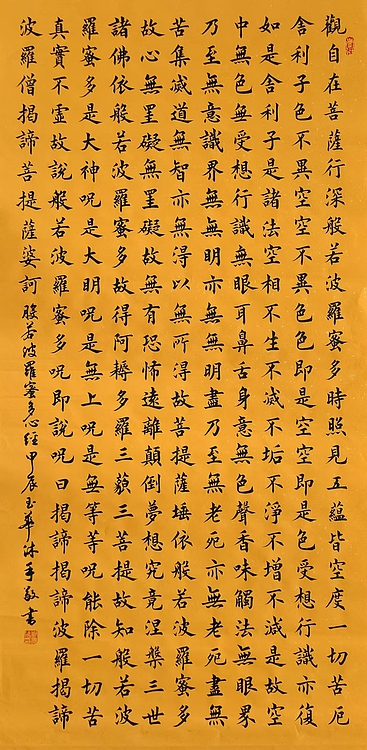 觀自在菩薩行深般若波羅蜜多時照見五蘊皆空度一切苦厄
舍利子色不異空空不異色色即是空空即是色受想行識亦復
如是舍利子是諸法空相不生不滅不垢不淨不增不減是故空
中無色無受想行識無眼耳鼻舌身意無色聲香味觸法無眼界
乃至無意識界無無明亦無無明盡乃至無老死亦無老死盡無
苦集滅道無智亦無得以無所得故菩提薩埵依般若波羅蜜多
故心無罣礙無罣礙故無有恐怖遠離顛倒夢想究竟涅槃三世
諸佛依般若波羅蜜多故得阿耨多羅三藐三菩提故知般若波
羅蜜多是大神呪是大明呪是無上呪是無等等呪能除一切苦
真實不虛故說般若波羅蜜多呪即說呪曰揭諦揭諦波羅揭諦
波羅僧揭諦菩提薩婆訶 般若波羅蜜多心經 甲辰玉華沐手敬書